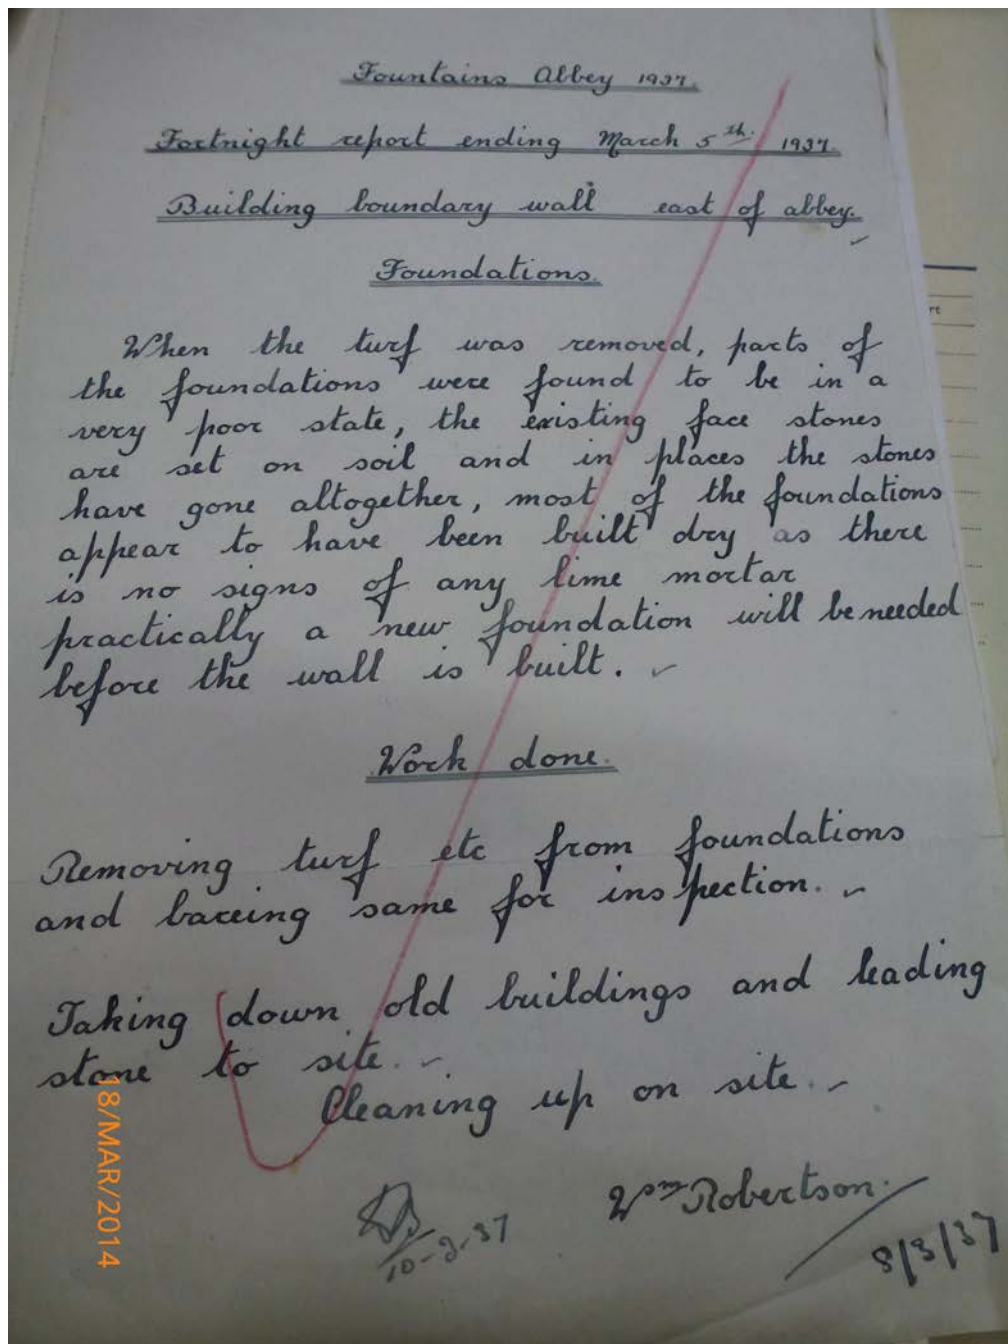 Fountains Abbey 1937.
Fortnight report ending March 5th. 1937.
Building boundary wall east of abbey.
Foundations.
When the turf was removed, parts of
the foundations were found to be in a
very poor state, the existing face stones
are set on soil and in places the stones
have gone altogether, most of the foundations
appear to have been built dry as there
is no signs of any lime mortar
practically a new foundation will be needed
before the wall is built.
Work done.
Removing turf etc from foundations
and bareing same for inspection.
Taking down old buildings and leading
stone to site.
Cleaning up on site.
Wm Robertson.
10-3-37
8/3/37
18/MAR/2014